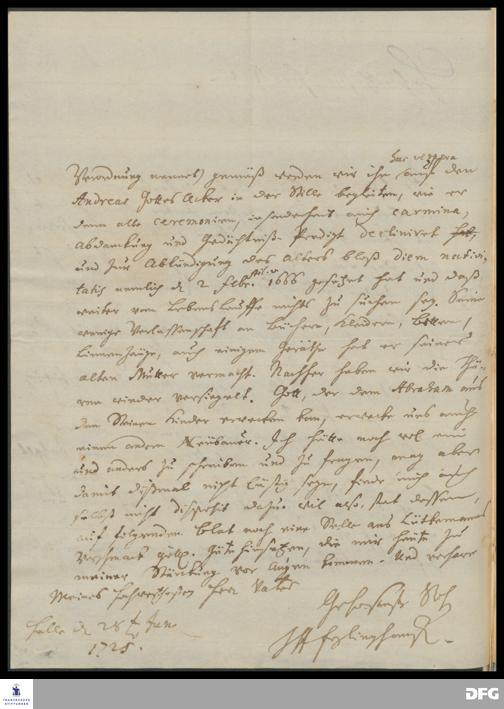 hac vespera
Verordnung gemäß werden wir ihn auf den
Andreas Gottes Acker in der Stille begleiten, wie er
denn alle ceremonien, insonderheit auch carmina,
Abdanckung und Gedächtniß Predigt decliniret hat,
und zur Abkündigung des Alters bloß diem nativi,
tatis nemlich d 2 Febr. 1666 gesetzet hat und daß
weiter vom Lebenslauffe nichts zu suchen sey. Seine
wenige Verlassenschaft an Büchern, Kleidern, Betten,
Linnenzeuge, auch einigem Geräthe hat er seiner
alten Mutter vermacht. Nachher haben wir die Thü-
ren wieder versiegelt. Gott, der dem Abraham aus
den Steinen Kinder erwecken kan, erwecke uns auch
einen andern Neubauer. Ich hätte noch wol ein
und anders zu schreiben und zu fragen, mag aber
damit dißmal nicht lästig seyn, finde mich auch
selbst nicht disponirt dazu. Wil also, stat dessen,
auf folgenden Blat noch eine Stelle aus Lütkemanns
Vorschmack göttl. Güte hinsetzen, die mir heute zu
meiner Stärckung vor Augen kommen. Und verharre
Meines Herrn Vaters
Gehorsamster Sohn
Halle d 28 Jan
1728.
FRANCKESCHE
STIFTUNGEN
DFG